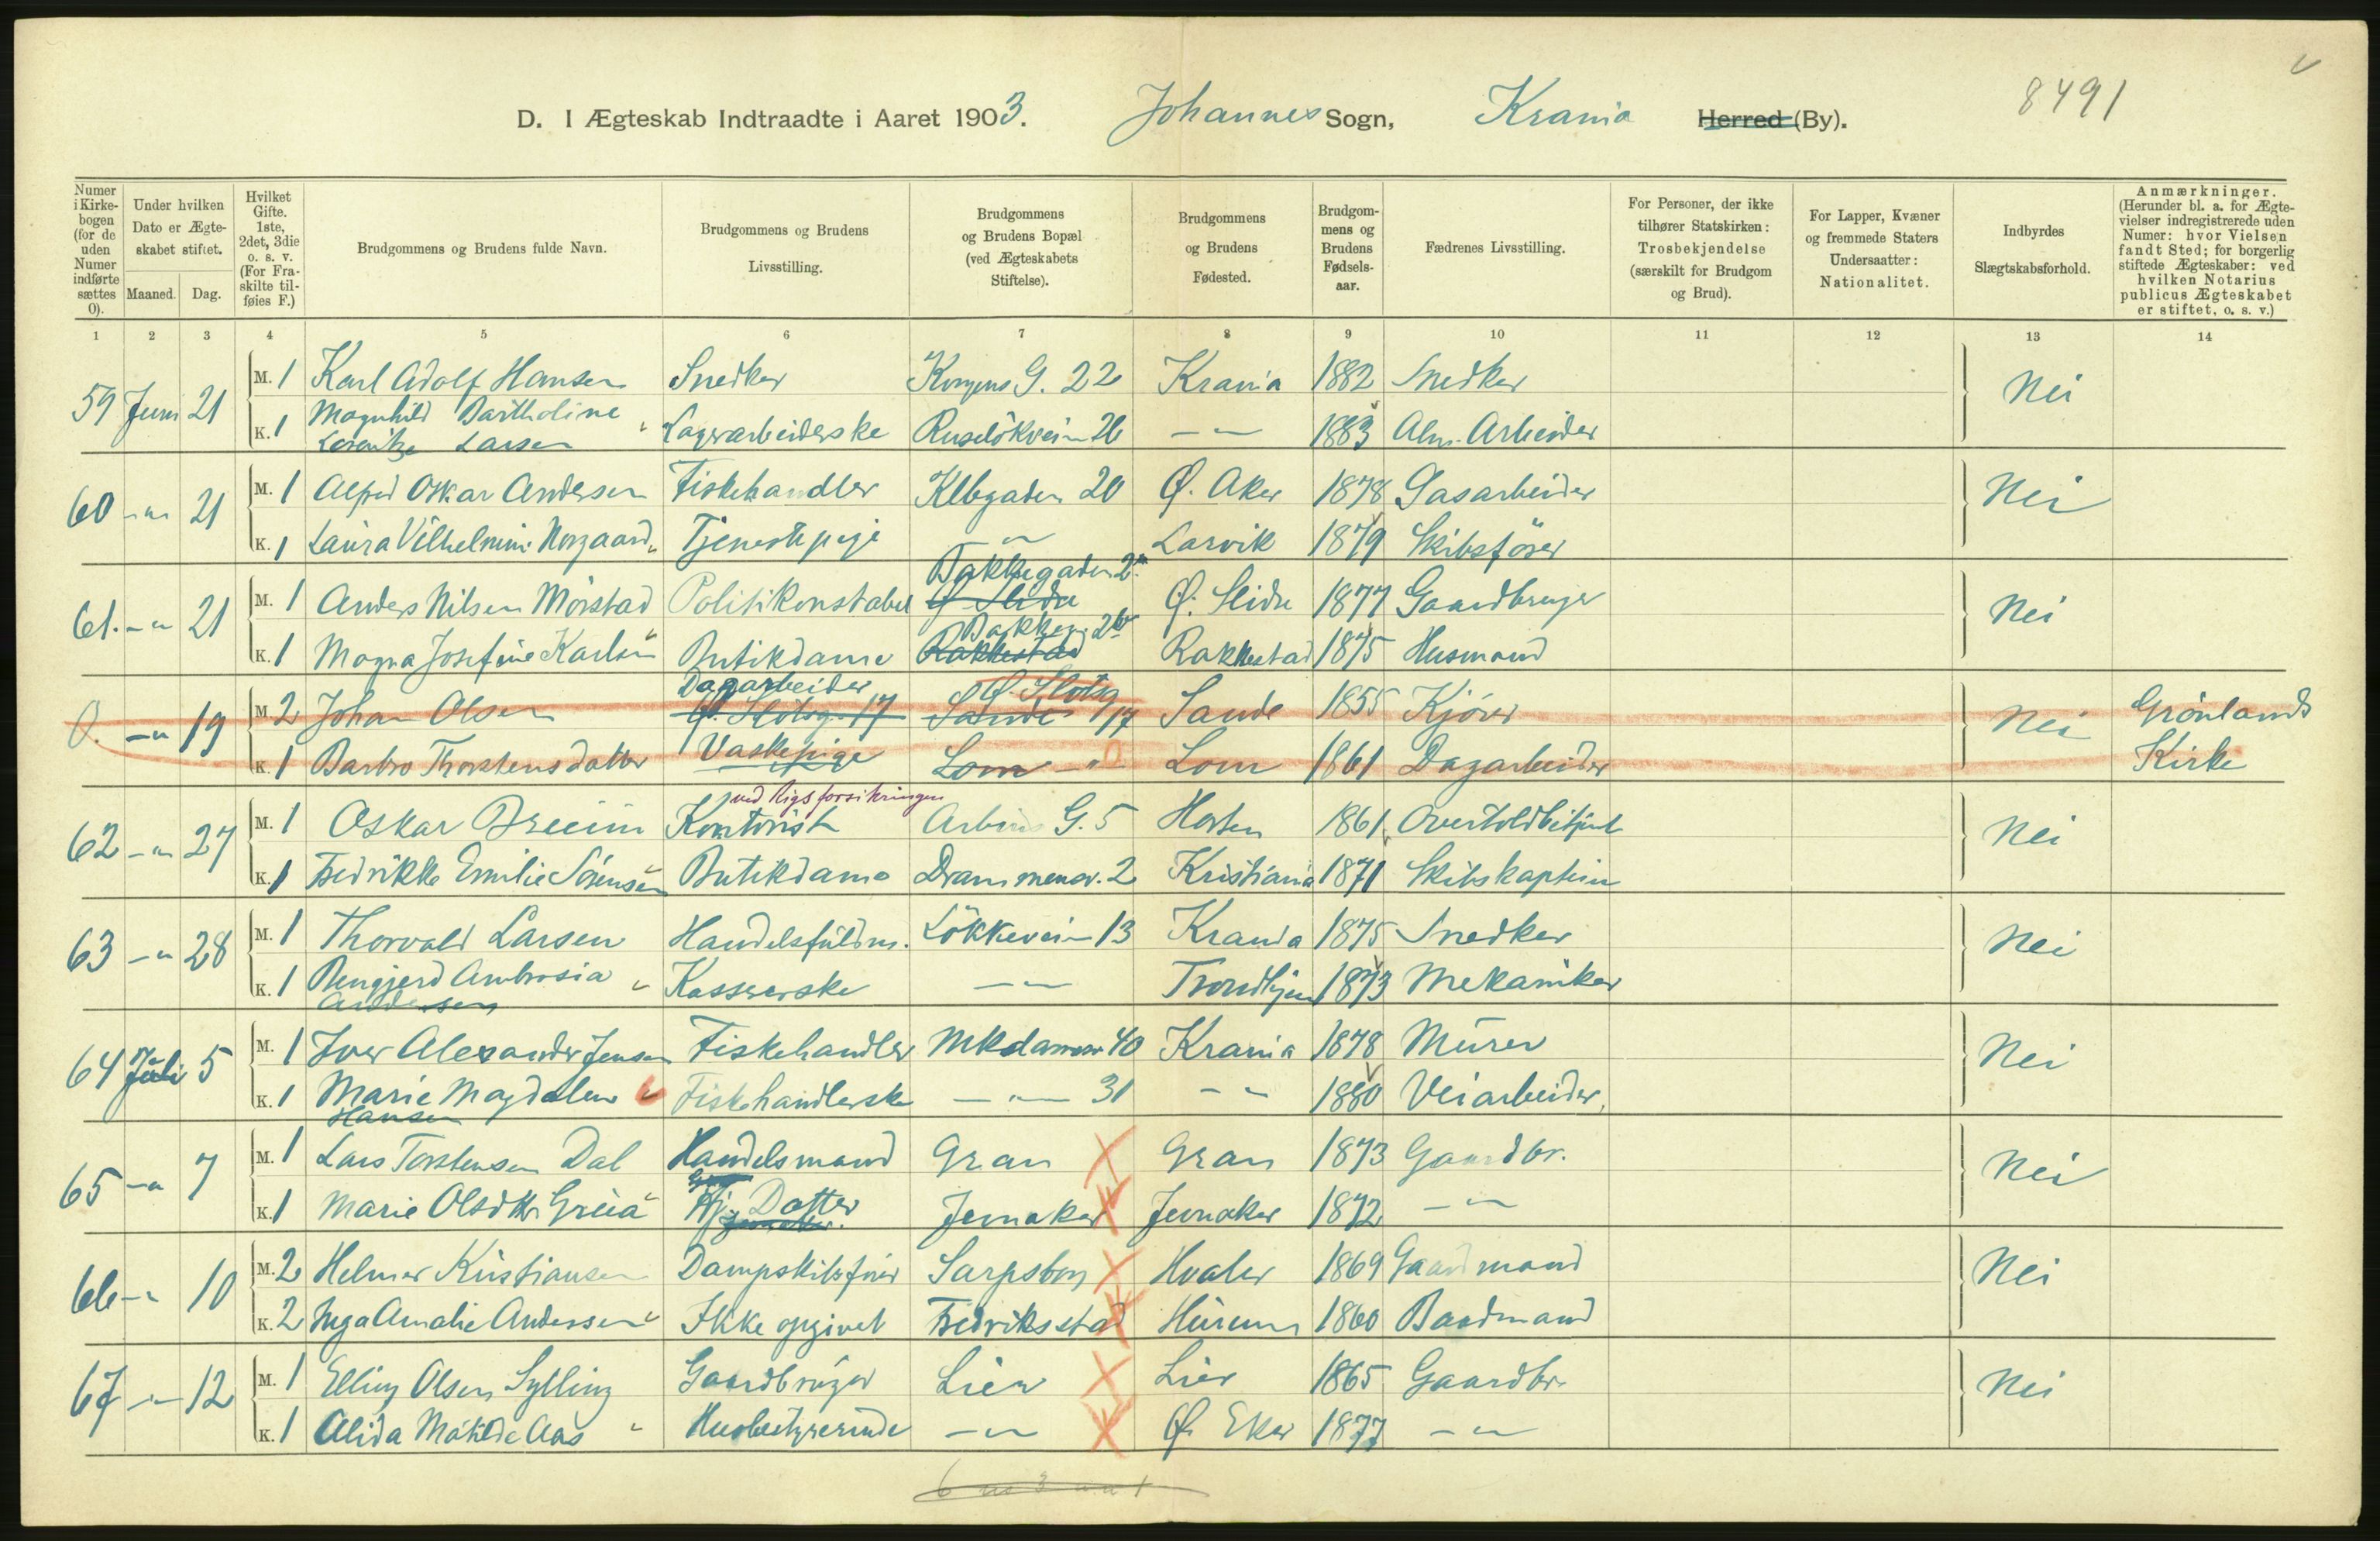 8491
D. I Ægteskab Indtraadte i Aaret 1903. Johannes Sogn, Krania Herred (By).
Numer i Kirke-bogen (for de uden Numer indførte sættes 0).
Under hvilken Dato er Ægte-skabet stiftet.
Maaned. Dag.
Hvilket Gifte. 1ste, 2det, 3die o. s. v. (For Fra-skilte til-føies F.)
Brudgommens og Brudens fulde Navn.
Brudgommens og Brudens Livsstilling.
Brudgommens og Brudens Bopæl (ved Ægteskabets Stiftelse).
Brudgommens og Brudens Fødested.
Brudgom-mens og Brudens Fødsels-aar.
Fædrenes Livsstilling.
For Personer, der ikke tilhører Statskirken: Trosbekjendelse (særskilt for Brudgom og Brud).
For Lapper, Kvæner og fremmede Staters Undersaatter: Nationalitet.
Indbyrdes Slægtskabsforhold.
Anmærkninger. (Herunder bl. a. for Ægte-vielser indregistrerede uden Numer: hvor Vielsen fandt Sted; for borgerlig stiftede Ægteskaber: ved hvilken Notarius publicus Ægteskabet er stiftet, o. s. v.)
1 2 3 4 5 6 7 8 9 10 11 12 13 14
59 Juni 21 M. 1 Karl Adolf Hansen Snedker Kongens G. 22 Krania 1882 Snedker Nei
K. 1 Magnhild Bartholine Lagerarbeiderske Ruselökveien 26 -"- 1883 Alm. Arbeider
Lorentze Larsen
60 -"- 21 M. 1 Alfred Oskar Andersen Fiskehandler 20 Ø. Aker 1878 Gasarbeider Nei
K. 1 Laura Vilhelmine Norgaard Tjenestepige -"- Larvik 1879 Skibsfören
Bakkegaden
61. -"- 21 M. 1 Anders Nilsen Mörstad Politikonstabel Ø. Slidre Ø. Slidre 1877 Gaardbruger Nei
Bakkeg.
K. 1 Magna Josefine Karlsen Butikdame Rakkestad Rakkestad 1875 Husmand
Dagarbeider Ø. Slotsg
0. -"- 19 M. 2 Johan Olsen Ø. Slotsg. 17 Sande 17 Sande 1855 Kjörer Nei Grönlands
K. 1 Barbro Thorstensdatter Vaskepige Lom -"- Lom 1861 Dagarbeider Kirke
ved Rigsforsikringen
62 -"- 27 M. 1 Oskar Kontorist G. 5 Horten 1861 Overtoldbetjent Nei
K. 1 Fredrikke Emilie Sörensen Butikdame Drammensv. 2 Kristiania 1871 Skibskaptein
63 -"- 28 M. 1 Thorvald Larsen Handelsfuldm. Lökkeveien 13 Krania 1875 Snedker Nei
K. 1 Rengjerd Ambrosia Kassererske -"- Trondhjem 1873 Mekaniker
Andersen
64 Juli 5 M. 1 Iver Alexander Jensen Fiskehandler 40 Krania 1878 Murer Nei
K. 1 Marie Magdalene Fiskehandlerske -"- 31 -"- 1880 Veiarbeider
Hansen
65 -"- 7 M. 1 Lars Torstensen Dal Handelsmand Gran Gran 1873 Gaardbr. Nei
K. 1 Marie Olsdtr. Datter Jevnaker Jevnaker 1872 -"-
66 -"- 10 M. 2 Helmer Kristiansen Dampskibsförer Sarpsborg Hvaler 1869 Gaardmand Nei
K. 2 Inga Amalie Andersen Ikke opgivet Fredriksstad Hurum 1860 Baadmand
67 -"- 12 M. 1 Elling Olsen Sylling Gaardbruger Lier Lier 1865 Gaardbr. Nei
K. 1 Alida Matilde Aas Husbestyrerinde -"- Ø. Eker 1877 -"-